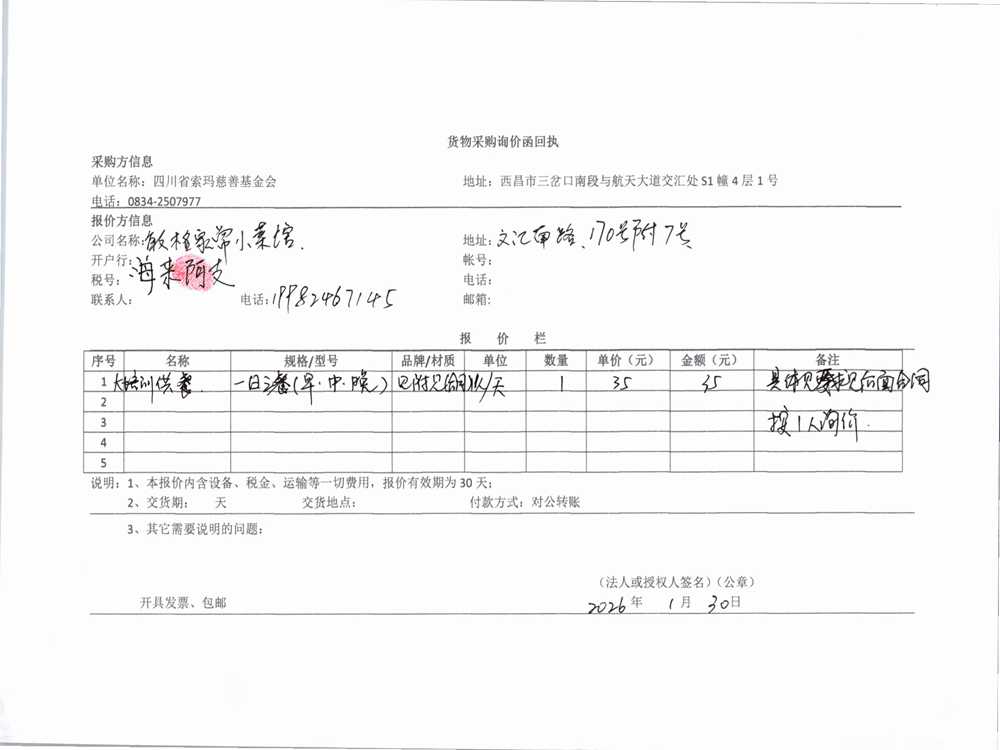 货物采购询价函回执
采购方信息
单位名称：四川省索玛慈善基金会 地址：西昌市三岔口南段与航天大道交汇处 S1 幢 4 层 1 号
电话：0834-2507977
报价方信息
公司名称：敏格家常小菜馆. 地址：文汇南路、170号附7号
开户行： 帐号：
海来阿支
税号： 电话：
联系人： 电话：19982467145 邮箱:
报 价 栏
序号 名称 规格/型号 品牌/材质 单位 数量 单价（元） 金额（元） 备注
1 培训供餐. 一日三餐(早.中.晚) 人/天 1 35 35 具体见要求见后面合同
2
3 按1人询价.
4
5
说明：1、本报价内含设备、税金、运输等一切费用，报价有效期为 30 天；
2、交货期： 天 交货地点： 付款方式：对公转账
3、其它需要说明的问题：
（法人或授权人签名）（公章）
开具发票、包邮 2026 年 1 月 30日